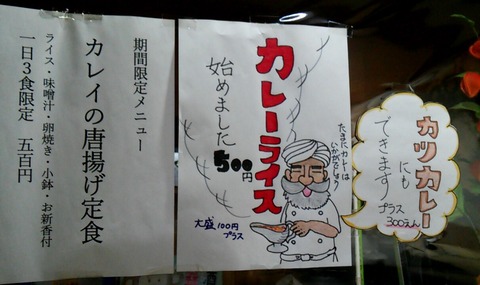 期間限定メニュー
カレイの唐揚げ定食
ライス・味噌汁・卵焼き・小鉢・お新香付
一日3食限定 五百円
カレーライス
始めました
500円
たまにカレーは
いかがでしょう
大盛100円
プラス
カツカレー
にも
できます
プラス
300えん